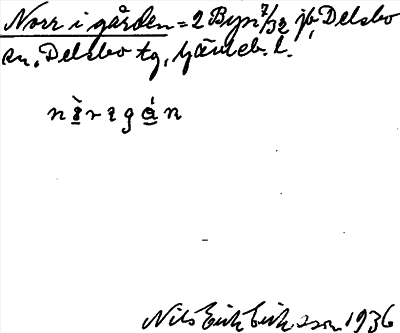 Norr i gården = 2 Byn 7/32 jb, Delsbo
sn, Delsbo tg, Gävleb. l.
Nils Erik Eriksson 1936